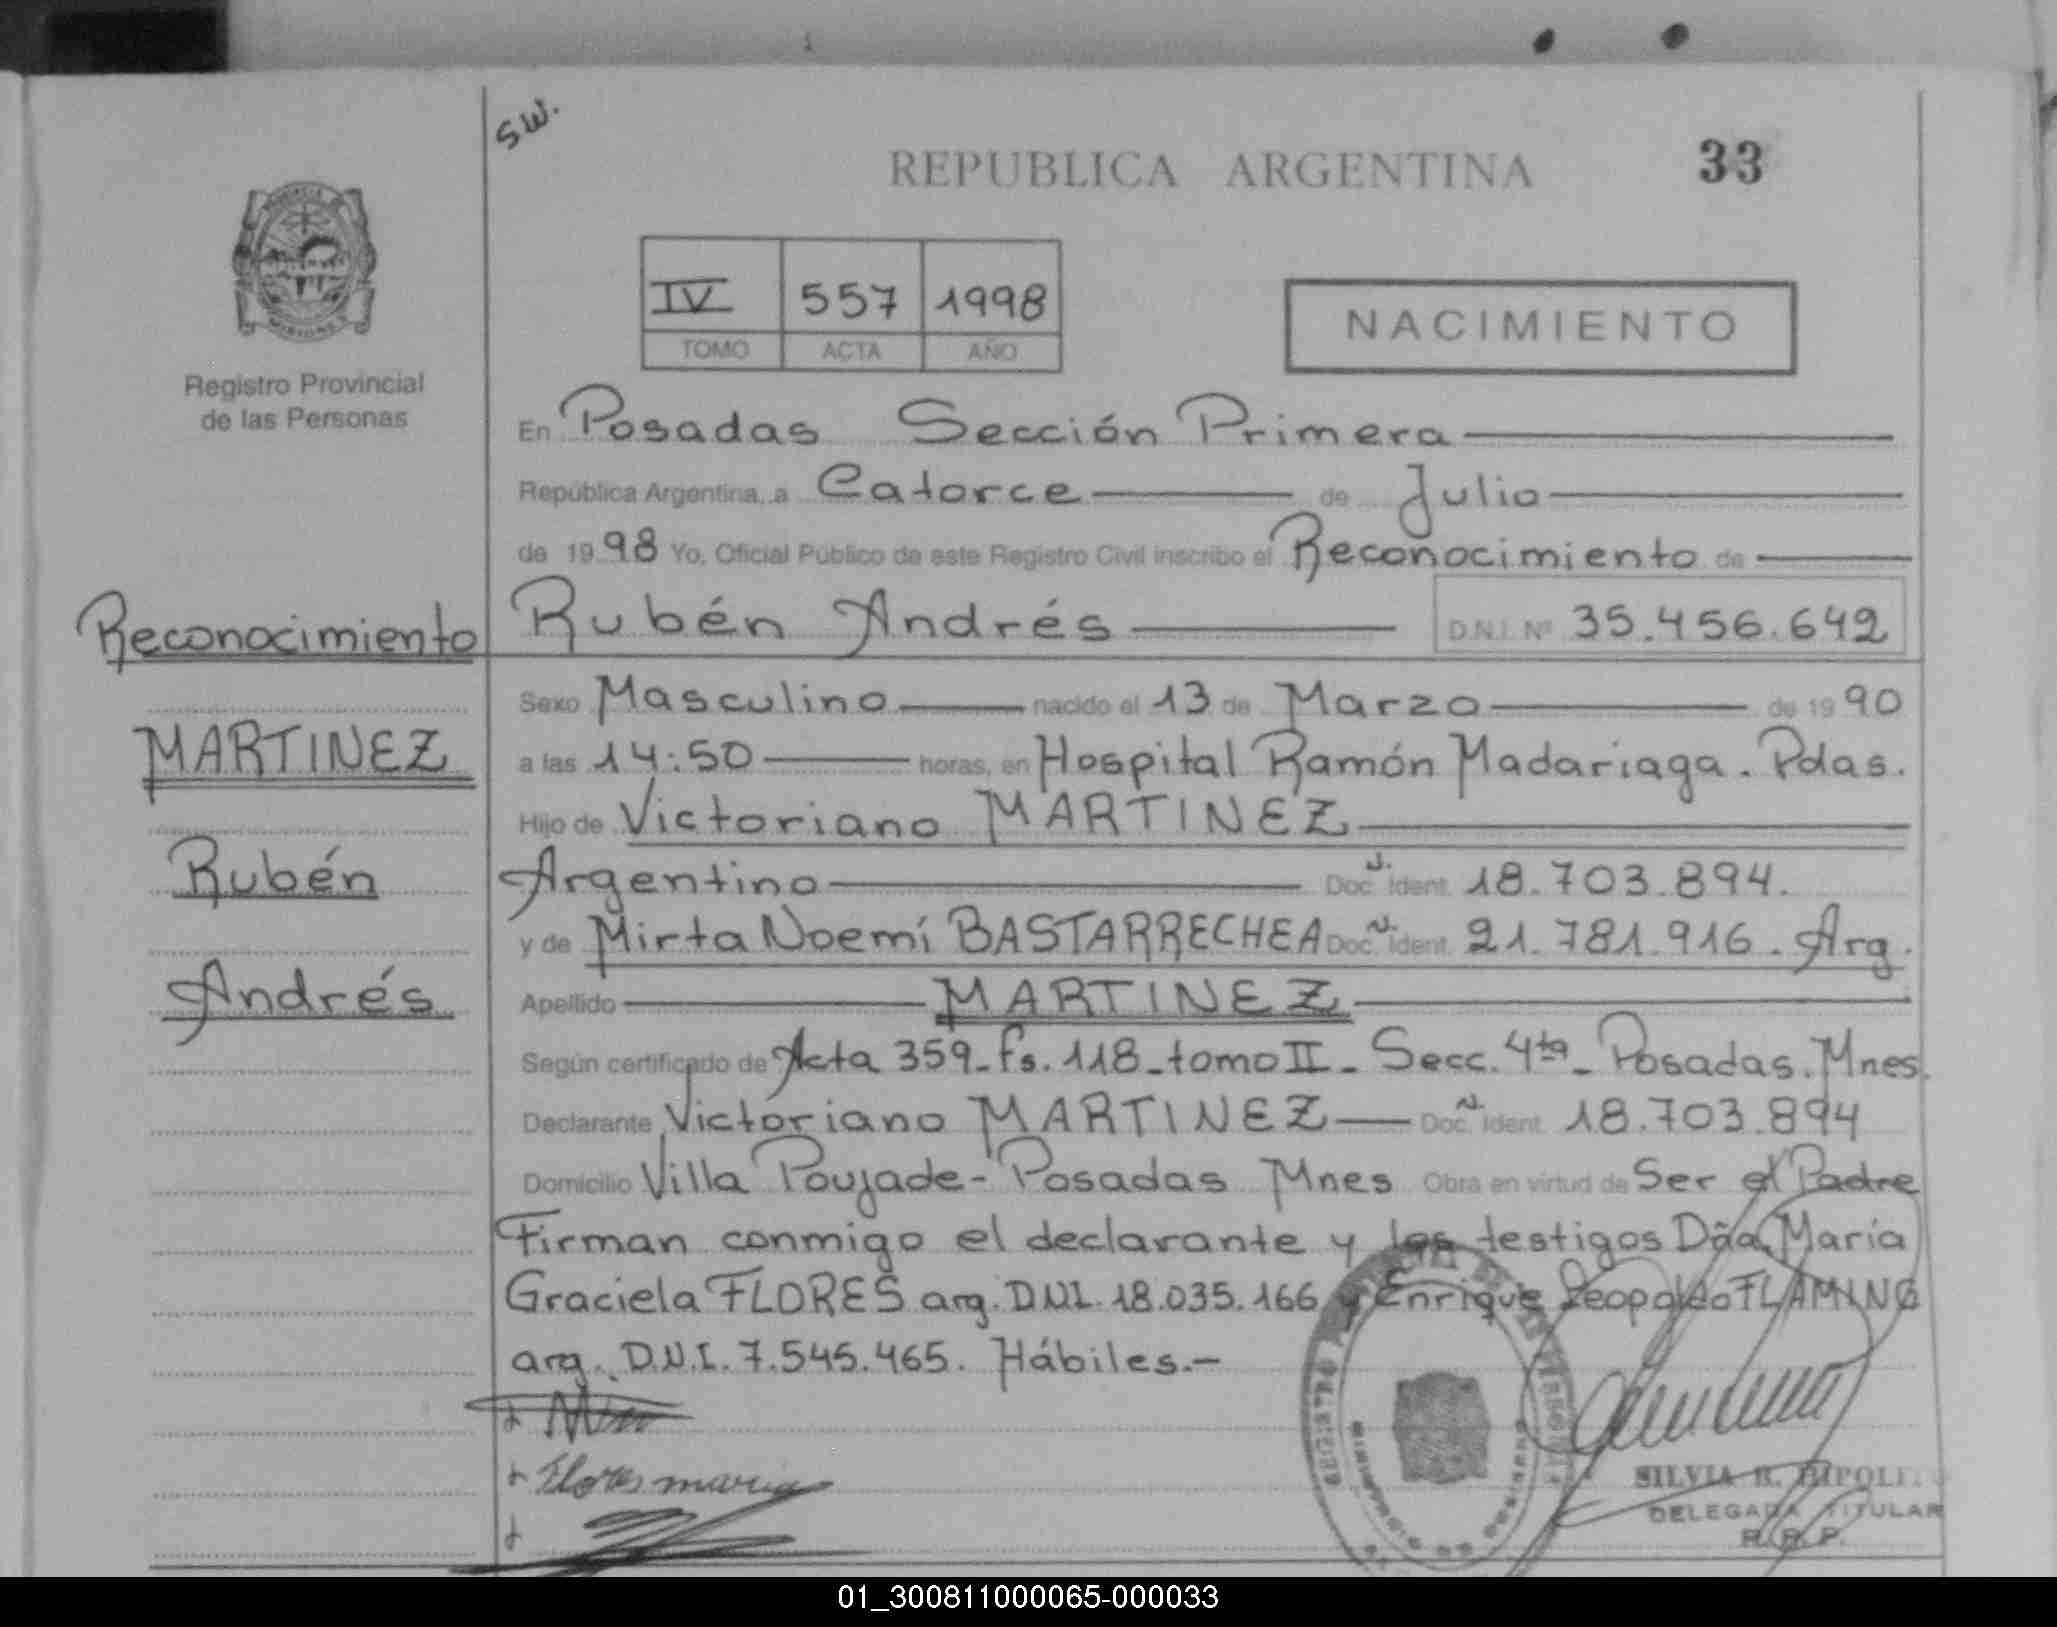 S.W.
REPUBLICA ARGENTINA
33
IV 557 1998
TOMO ACTA AÑO
NACIMIENTO
MISIONES
Registro Provincial
de las Personas
En Posadas Sección Primera
República Argentina, a Catorce de Julio
de 1998 Yo, Oficial Público de este Registro Civil inscribo el Reconocimiento de
Reconocimiento
Rubén Andrés D.N.I. Nº 35.456.642
Sexo Masculino nacido el 13 de Marzo de 1990
MARTINEZ
a las 14:50 horas, en Hospital Ramón Madariaga. Pdas.
Hijo de Victoriano MARTINEZ
Rubén
Argentino Doc. Ident. 18.703.894.
y de Mirta Noemí BASTARRECHEA Doc. Ident. 21.781.916. Arg.
Andrés
Apellido MARTINEZ
Según certificado de Acta 359-fs. 118-tomo II- Secc. 4ta- Posadas. Mnes.
Declarante Victoriano MARTINEZ Doc. Ident. 18.703.894
Domicilio Villa Poujade- Posadas Mnes Obra en virtud de Ser el Padre
Firman conmigo el declarante y los testigos Dña. María
Graciela FLORES arg. D.N.I. 18.035.166 y Enrique Leopoldo FLAMINO
arg. D.N.I. 7.545.465. Hábiles.-
Flores maria
SILVIA R. HIPOLITO
DELEGADA TITULAR
R.P.P.
01_300811000065-000033